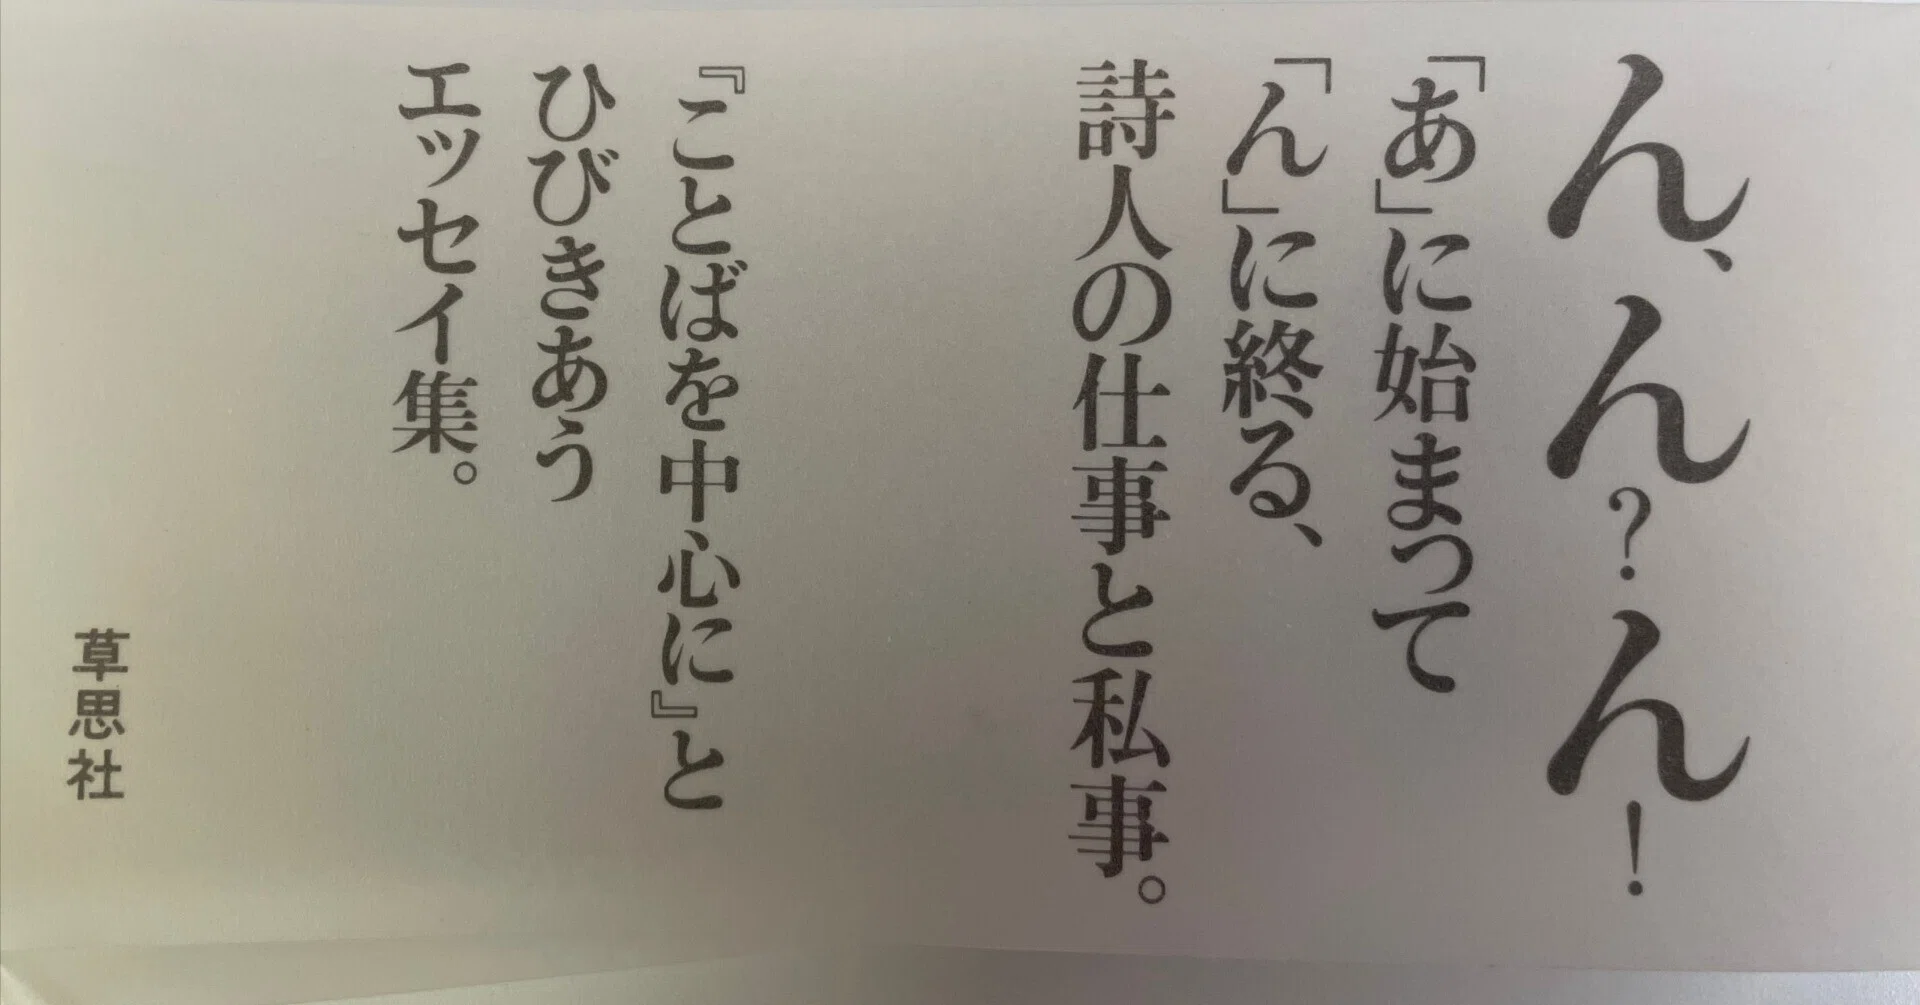 ん、ん？ん！
「あ」に始まって
「ん」に終る、
詩人の仕事と私事。
『ことばを中心に』と
ひびきあう
エッセイ集。
草思社